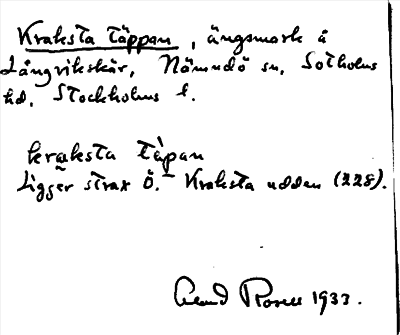 Kraksta täppan, ängsmark å
Långvikskär, Nämndö sn, Sotholms
hd, Stockholms l.
kraksta täpan
Ligger strax Ö. Kraksta udden (228).
Rosell 1933.